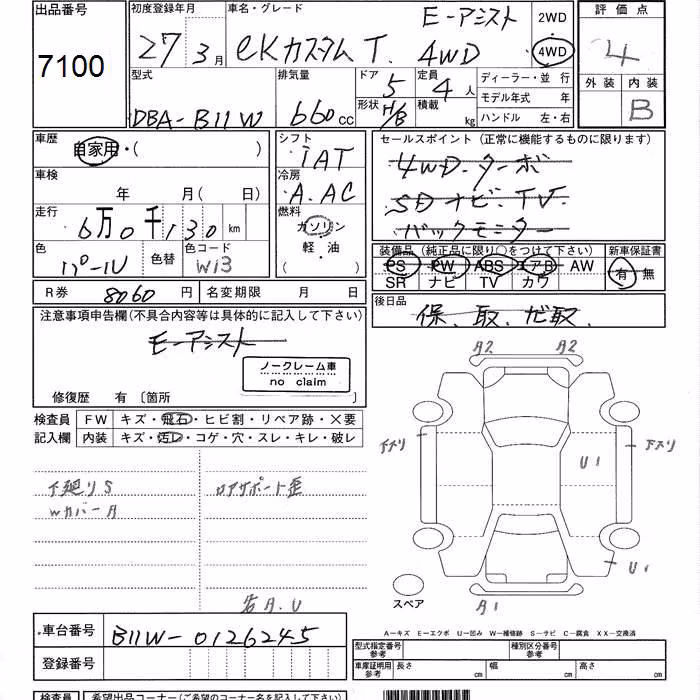 出品番号
7100
初度登録年月
27 3月
車名・グレード
E-アシスト
eKカスタム T 4WD
2WD
4WD
評価点
4
外装 内装
B
型式
DBA-B11W
排気量
660cc
ドア 5
形状 H/B
定員 4人
積載 kg
ディーラー・並行
モデル年式 年
ハンドル 左・右
車歴
自家用・( )
シフト
IAT
セールスポイント(正常に機能するものに限ります)
4WD ターボ
SDナビ TV
バックモニター
車検
年 月( 日)
冷房
A.AC
走行
6万0千130km
燃料
ガソリン
軽・油
( )
色
パール
色替
色コード
W13
装備品(純正品に限り○をつけて下さい)
PS PW ABS エアB AW
SR ナビ TV カワ
新車保証書
有 無
R券 8060円
名変期限 月 日
後日品
保、取、ナビ取
注意事項申告欄(不具合内容等は具体的に記入して下さい)
E-アシスト
ノークレーム車
no claim
修復歴 有〔箇所 〕
検査員
記入欄
FW キズ・飛石・ヒビ割・リペア跡・×要
内装 キズ・汚レ・コゲ・穴・スレ・キレ・破レ
下廻りS
Wカバー A
ロアサポート歪
若A.U
A2 A2
下スリ
下スリ
U1
U1
A1
スペア
車台番号
B11W-0126245
登録番号
A-キズ E-エクボ U-凹み W-補修跡 S-サビ C-腐食 XX-交換済
型式指定番号
参考
種別区分番号
参考
車庫証明用
参考
長さ cm
幅 cm
高さ cm
検査員
希望出品コーナー(ご希望のコーナー名を記入下さい)